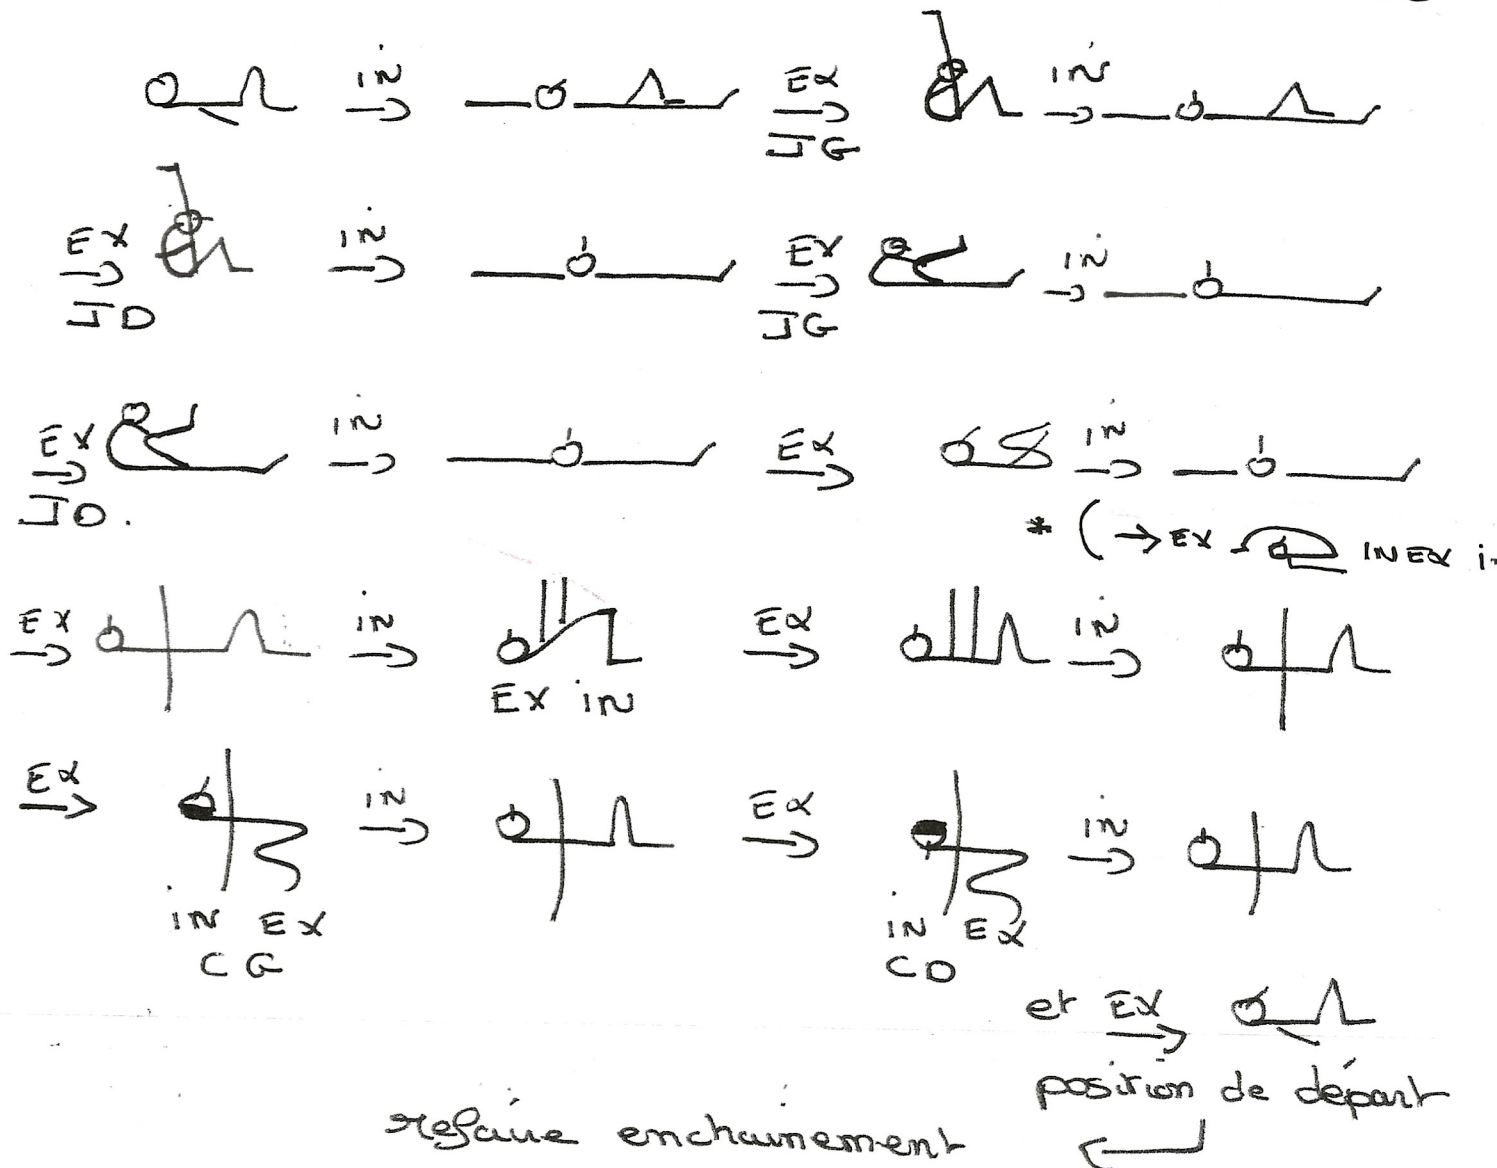 iN EX iN
JG
EX iN EX iN
JD JG
EX iN EX iN
JD.
* ( → EX INEX i
EX iN EX iN
EX iN
EX iN EX iN
iN EX iN EX
CG CD
et EX
position de départ
refaire enchainement